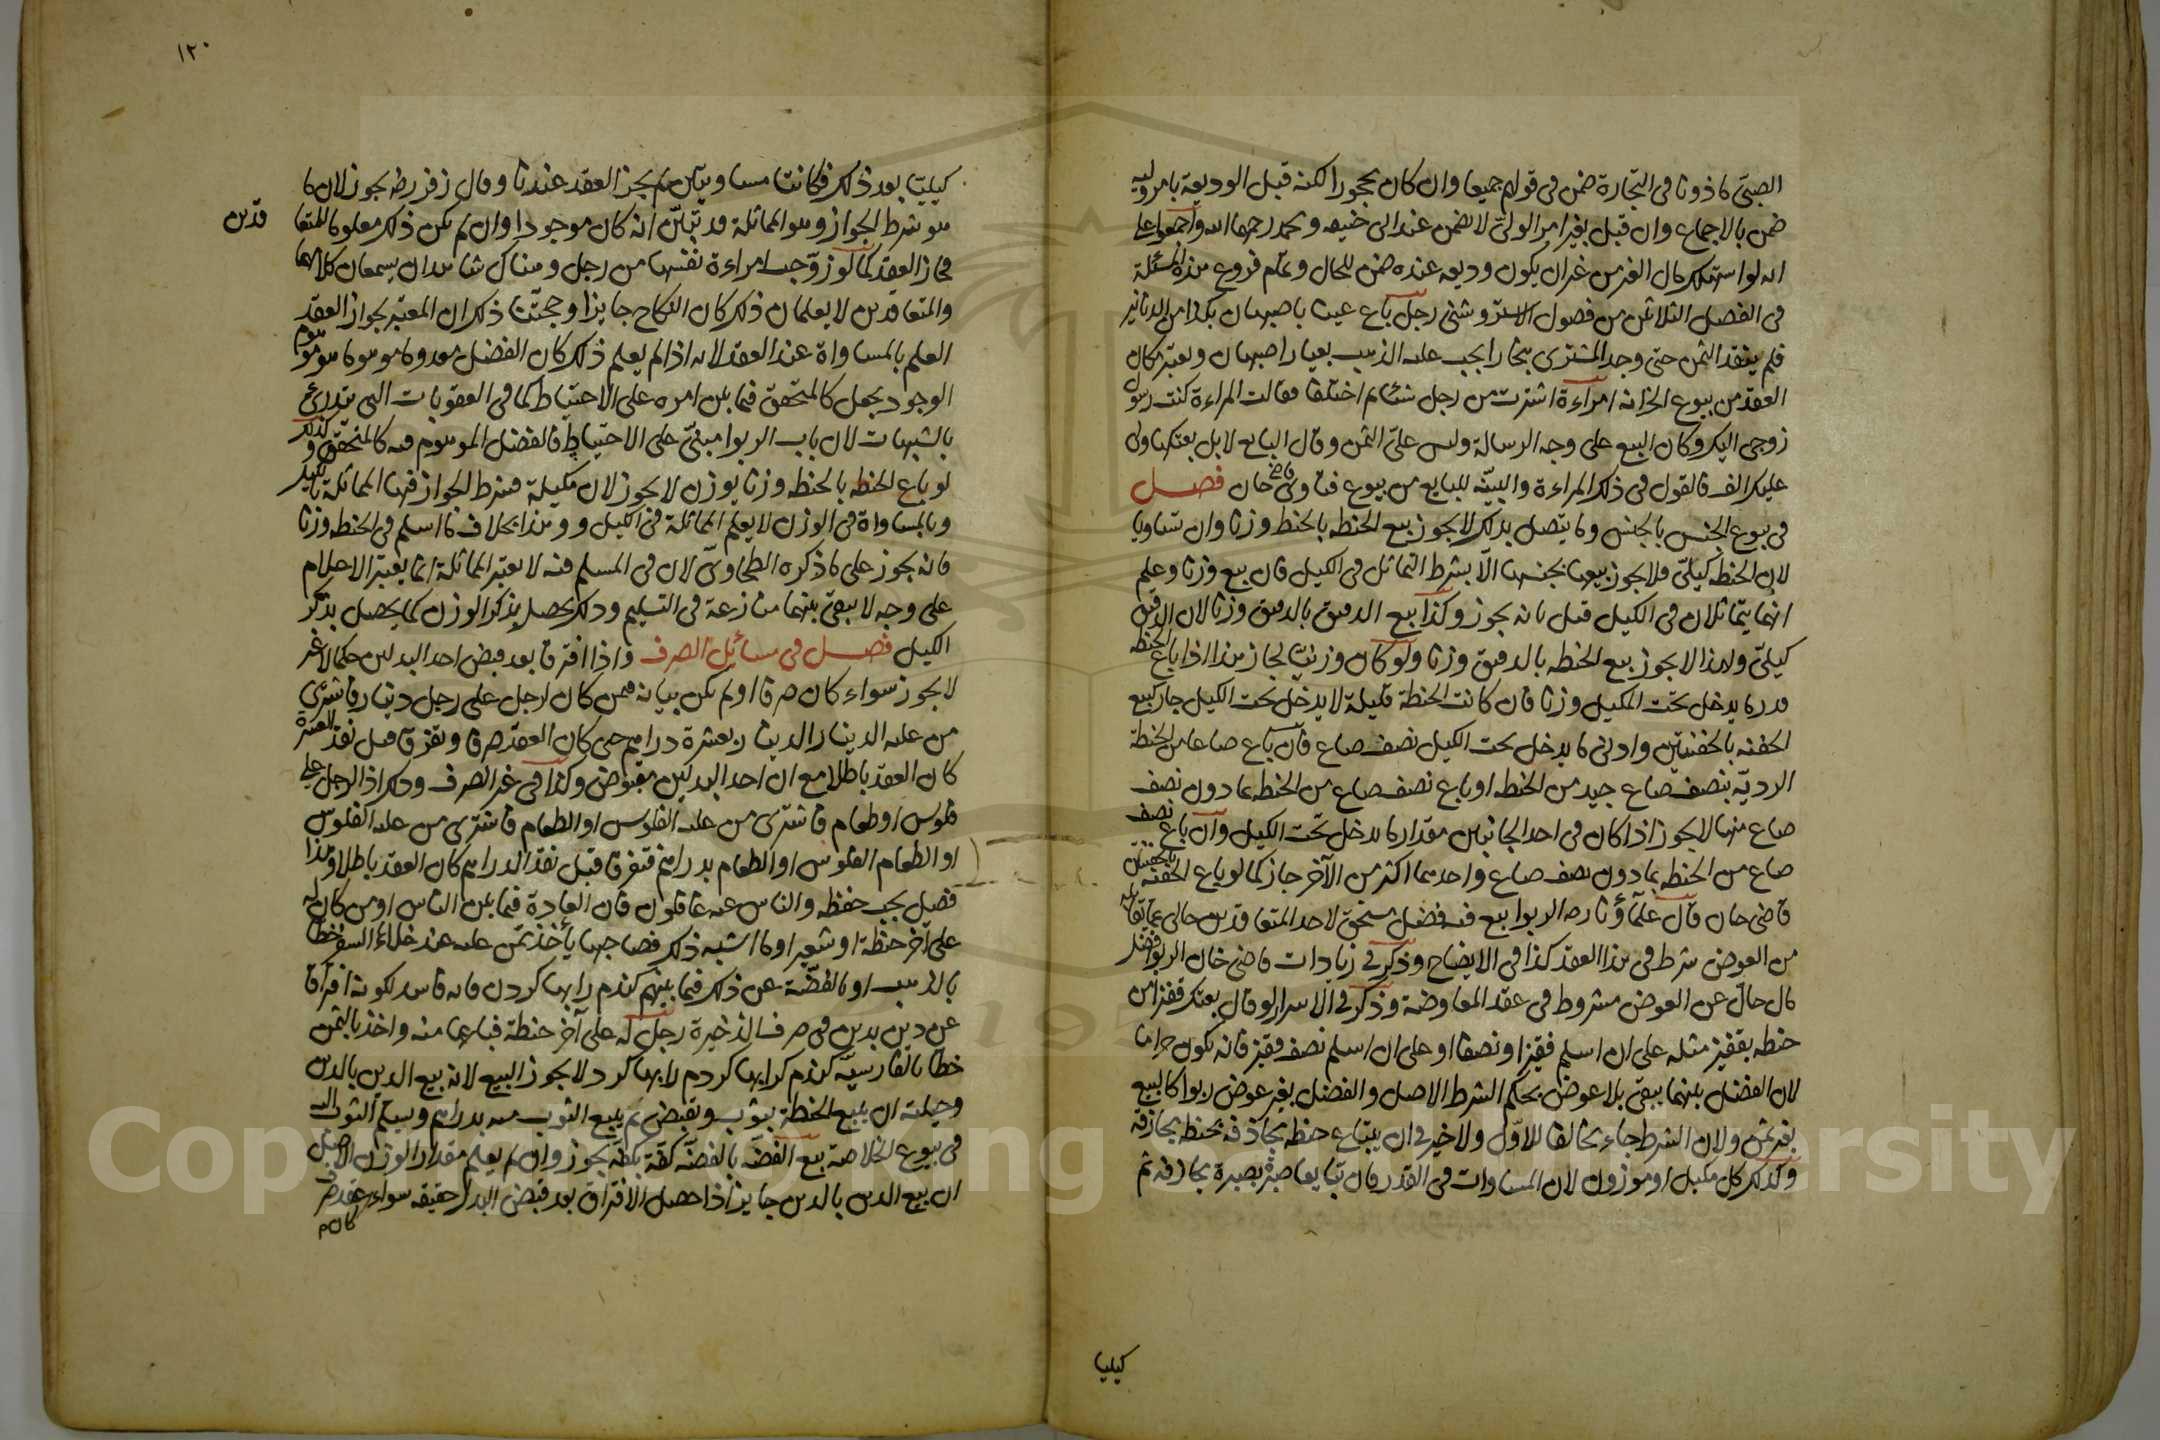 الصبى ماذونا فى التجارة ضمن فى قولهم جميعا وان كان محجورا لكنه قبل الوديعة بامر وليه
ضمن بالاجماع وان قبل بغير امر الولى لا يضمن عند ابى حنيفه ومحمد رحمهما الله واجمعوا على
انه لو استهلك مال الغير من غير ان يكون وديعه عنده ضمن للحال وتمام فروع هذه المسئلة
فى الفصل الثلاثين من فصول الاستروشنى رجل باع عينا باصبهان بكذا من الدنانير
فلم ينقد الثمن حتى وجد المشترى ببخارا يجب عليه الذهب بعيار اصبهان ويعتبر مكان
العقد من بيوع الخزانه امراءة اشترت من رجل شيئا ثم اختلفا فقالت المراءة كنت رسول
زوجى اليك وكان البيع على وجه الرسالة وليس على الثمن وقال البايع لا بل بعتكها ولى
عليك الف فالقول فى ذلك للمراءة والبينه للبايع من بيوع فتاوى قاضى خان فصل
فى بيوع الجنس بالجنس وما يتصل بذلك لا يجوز بيع الحنطه بالحنطه وزنا وان تساويا
لان الحنطه كيلى فلا يجوز بيعها بجنسها الا بشرط التماثل فى الكيل فان بيع وزنا وعلم
انهما يتماثلان فى الكيل قيل بانه يجوز وكذا بيع الدقيق بالدقيق وزنا لان الدقيق
كيلى ولهذا لا يجوز بيع الحنطه بالدقيق وزنا ولو كان وزنيا لجاز هذا اذا باع الحنطه
قدر ما يدخل تحت الكيل وزنا فان كانت الحنطة قليلة لا يدخل تحت الكيل جاز كبيع
الحفنه بالحفنتين وادنى ما يدخل تحت الكيل نصف صاع فان باع صاعا من الحنطة
الرديه بنصف صاع جيد من الحنطه او باع نصف صاع من الحنطه بما دون نصف
صاع منها لا يجوز اذا كان فى احد الجانبين مقدار ما يدخل تحت الكيل وان باع نصف
صاع من الحنطه بما دون نصف صاع واحدهما اكثر من الآخر جاز كما لو باع الحفنه بالحفنتين
قاضى خان قال علماؤنا رحه الربوا بيع فيه فضل مستحق لاحد المتعاقدين خالى عما يقابله
من العوض شرط فى هذا العقد كذا فى الايضاح وذكر فى زيادات قاضى خان الربوا فضل
مال خال عن العوض مشروط فى عقد المعاوضة وذكر فى الاسرار لو قال بعتك قفيزا من
حنطه بقفيز مثله على ان اسلم قفيزا ونصفا او على ان اسلم نصف قفيز فانه يكون حراما
لان الفضل بينهما يبقى بلا عوض بحكم الشرط الاصل والفضل بغير عوض ربوا كالبيع
بغير ثمن ولان الشرط جاء مخالفا للاول ولا خير فى ان يبتاع حنطه مجازفه بحنطه مجازفه
وكذلك كل مكيل او موزون لان المساوات فى القدر فان تبايعا صبرة بصبرة مجازفه ثم
كيليا
١٢٠
كيليا بعد ذلك فكانتا مساويتين لم يجز العقد عندنا وقال زفر رحه يجوز لان ما
هو شرط الجواز وهو المماثلة قد تبين انه كان موجودا وان لم يكن ذلك معلوما للمتعا
قدين
فجاز العقد كما لو زوجت امراءة نفسها من رجل وهناك شاهدان يسمعان كلامهما
والمتعاقدين لا يعلمان ذلك كان النكاح جايزا وحجتنا ذلك ان المعتبر بجواز العقد
العلم بالمساواة عند العقد لانه اذا لم يعلم ذلك كان الفضل معدوما موهوما هو موهوم
الوجود يجعل كالمتحقق فيما بين امره على الاحتياط كما فى العقوبات التى يتدرئ
بالشبهات لان باب الربوا مبنى على الاحتياط فالفضل الموهوم فيه كالمتحقق وكذلك
لو باع الحنطه بالحنطه وزنا بوزن لا يجوز لان مكيلة فشرط الجواز فيها المماثلة بالكيل
وبالمساواة فى الوزن لا يعلم المماثلة فى الكيل و وهذا بخلاف ما اسلم فى الحنطه وزنا
فانه يجوز على ما ذكره الطحاوى لان فى المسلم فيه لا يعتبر المماثلة انما يعتبر الاعلام
على وجه لا يبقى بينهما منازعة فى التسليم وذلك يحصل بذكر الوزن كما يحصل بذكر
الكيل فصل فى مسائل الصرف واذا افترقا بعد قبض احد البدلين حكما لا غير
لا يجوز سواء كان صرفا او لم يكن بيانه فيمن كان لرجل على رجل دينار فاشترى
من عليه الدينار الدينار بعشرة دراهم حتى كان العقد صرفا وتفرقا قبل نقد العشرة
كان العقد باطلا مع ان احد البدلين مقبوض وكذا فى غير الصرف وذلك اذا لرجل على
فلوس او طعام فاشترى من عليه الفلوس او الطعام فاشترى من عليه الفلوس
او الطعام الفلوس او الطعام بدراهم فتفرقا قبل نقد الدراهم كان العقد باطلا وهذا
فصل يجب حفظه والناس عنه غافلون فان العادة فيما بين الناس ان من كان له
على آخر حنطة او شعير او ما اشبه ذلك فصاحبها يأخذ ممن عليه عند غلاء السعر خطا
بالذهب او بالفضة عن ذلك فيما بينهم كندم رابها كردن فانه فاسد لكونه افتراقا
عن دين بدين فى صرف الذخيرة رجل له على آخر حنطة فباعها منه واخذ بالثمن
خطا بالفارسية كندم كرابها كردم رابها كرد لا يجوز البيع لانه بيع الدين بالدين
وحيلته ان يبيع الحنطة بثوب ويقبض ثم يبيع الثوب منه بدراهم ويسلم الثوب اليه
فى بيوع الخلاصة بيع الفضه بالفضه كفة بكفه يجوز وان لم يعلم مقدار الوزن الاصل
ان بيع الدين بالدين جايز اذا حصل الافتراق بعد قبض البدل حقيقه سواء عقد صرف
كان م